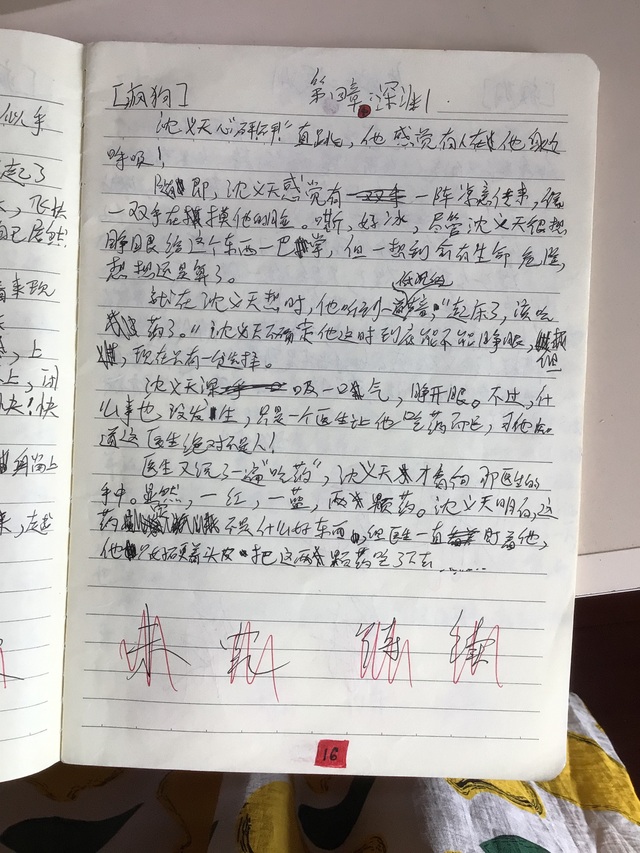 [病狗] 第四章:深渊1
沈义天心砰砰直跳,他感觉有人在他身边
呼吸!
随即,沈义天感觉有一阵凉意传来,像
一双手在摸他的脸。嘶,好冰,尽管沈义天很想
睁眼给这个东西一巴掌,但一想到会有生命危险,
想想还是算了。
就在沈义天想时,他听到声音:"起床了,该吃
药了。"沈义天不确定他这时到底能不能睁眼,
现在只有一个选择。
沈义天深吸一口气,睁开眼。不过,什
么事也没发生,只是一个医生让他吃药而已,可他知
道这医生绝对不是人!
医生又说了一遍"吃药",沈义天才看向那医生的
手中。显然,一红,一蓝,两颗药。沈义天明白,这
药不是什么好东西,但医生一直盯着他,
他只好硬着头皮把这两颗药吃了下去……
未完待续
16
似乎
起了
飞快
自己居然
上
上,闭
快!快
身当上
来,起